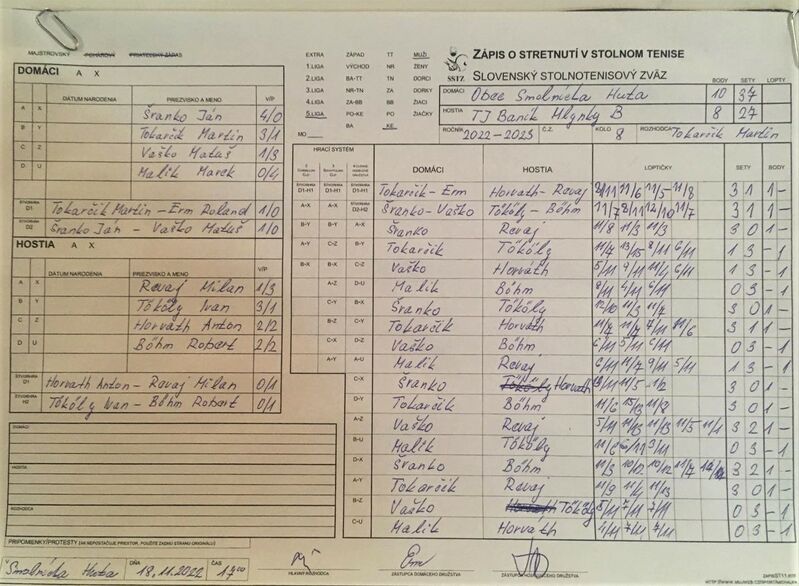 MAJSTROVSKÝ POHÁROVÝ PRIATEĽSKÝ ZÁPAS
DOMÁCI A X
DÁTUM NARODENIA PRIEZVISKO A MENO V/P
A X Šranko Ján 4/0
B Y Tokarčík Martin 3/1
C Z Vaško Matúš 1/3
D U Malik Marek 0/4
ŠTVORHRA D1 Tokarčík Martin - Erm Roland 1/0
ŠTVORHRA D2 Šranko Ján - Vaško Matúš 1/0
HOSTIA A X
DÁTUM NARODENIA PRIEZVISKO A MENO V/P
A X Revaj Milan 1/3
B Y Tököly Ivan 3/1
C Z Horváth Anton 2/2
D U Böhm Robert 2/2
ŠTVORHRA D1 Horvath Anton - Revaj Milan 0/1
ŠTVORHRA H2 Tököly Ivan - Böhm Robert 0/1
DOMÁCI
HOSTIA
ROZHODCA
PRIPOMIENKY/PROTESTY (AK NEPOSTAČUJE PRIESTOR, POUŽITE ZADNÚ STRANU ORIGINÁLU)
EXTRA ZÁPAD TT MUŽI
1.LIGA VÝCHOD NR ŽENY
2.LIGA BA-TT TN DORCI
3.LIGA NR-TN ZA DORKY
4.LIGA ZA-BB BB ŽIACI
5.LIGA PO-KE PO ŽIAČKY
MO BA KE
SSTZ
ZÁPIS O STRETNUTÍ V STOLNOM TENISE
SLOVENSKÝ STOLNOTENISOVÝ ZVÄZ
BODY SETY LOPTY
DOMÁCI Obec Smolnícka Huta 10 37
HOSTIA TJ Baník Hlynky B 8 27
ROČNÍK 2022-2023 Č.Z. KOLO 8 ROZHODCA Tokarčík Martin
HRACÍ SYSTÉM DOMÁCI HOSTIA LOPTIČKY SETY BODY
Tokarčik - Erm Horvath - Revaj 11/6 11/5 11/8 3 1 1 -
Šranko - Vaško Tököly - Böhm 11/7 8/11 12/10 11/7 3 1 1 -
Šranko Revaj 11/8 11/3 11/3 3 0 1 -
Tokarčik Tököly 11/7 13/15 8/11 6/11 1 3 - 1
Vaško Horváth 5/11 9/11 11/4 6/11 1 3 - 1
Malik Böhm 8/11 4/11 6/11 0 3 - 1
Šranko Tököly 12/10 11/3 11/7 3 0 1 -
Tokarčik Horvath 11/7 11/7 7/11 11/6 3 1 1 -
Vaško Böhm 6/11 5/11 6/11 0 3 - 1
Malik Revaj 6/11 11/7 9/11 5/11 1 3 - 1
Šranko Horvath 11/5 3 0 1 -
Tokarčik Böhm 11/6 15/13 11/8 3 0 1 -
Vaško Revaj 5/11 11/13 11/5 3 2 1 -
Malik Tököly 3/11 0 3 - 1
Šranko Böhm 11/3 10/12 10/12 11/7 3 2 1 -
Tokarčik Revaj 11/9 11/4 3 0 1 -
Vaško Tököly 8/11 7/11 7/11 0 3 - 1
Malik Horvath 4/11 7/11 7/11 0 3 - 1
V Smolnícka Huta DŇA 18.11.2022 ČAS 17:00
HLAVNÝ ROZHODCA ZÁSTUPCA DOMÁCEHO DRUŽSTVA ZÁSTUPCA HOSŤUJÚCEHO DRUŽSTVA